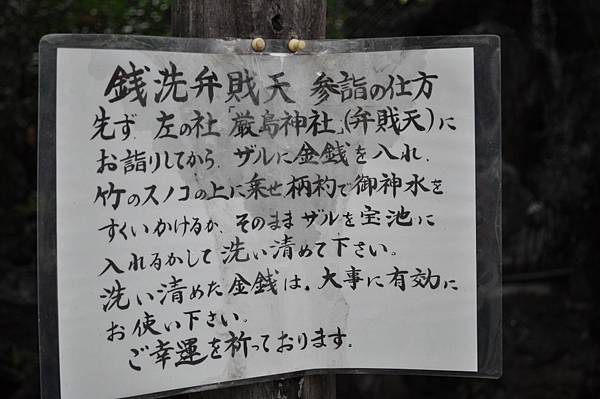 銭洗弁賎天 参詣の仕方
先ず、左の社「厳島神社」(弁賎天)に
お詣りしてから、ザルに金銭を入れ、
竹のスノコの上に乗せ柄杓で御神水を
すくいかけるか、そのままザルを宝池に
入れるかして洗い清めて下さい。
洗い清めた金銭は、大事に有効に
お使い下さい。
ご幸運を祈っております。